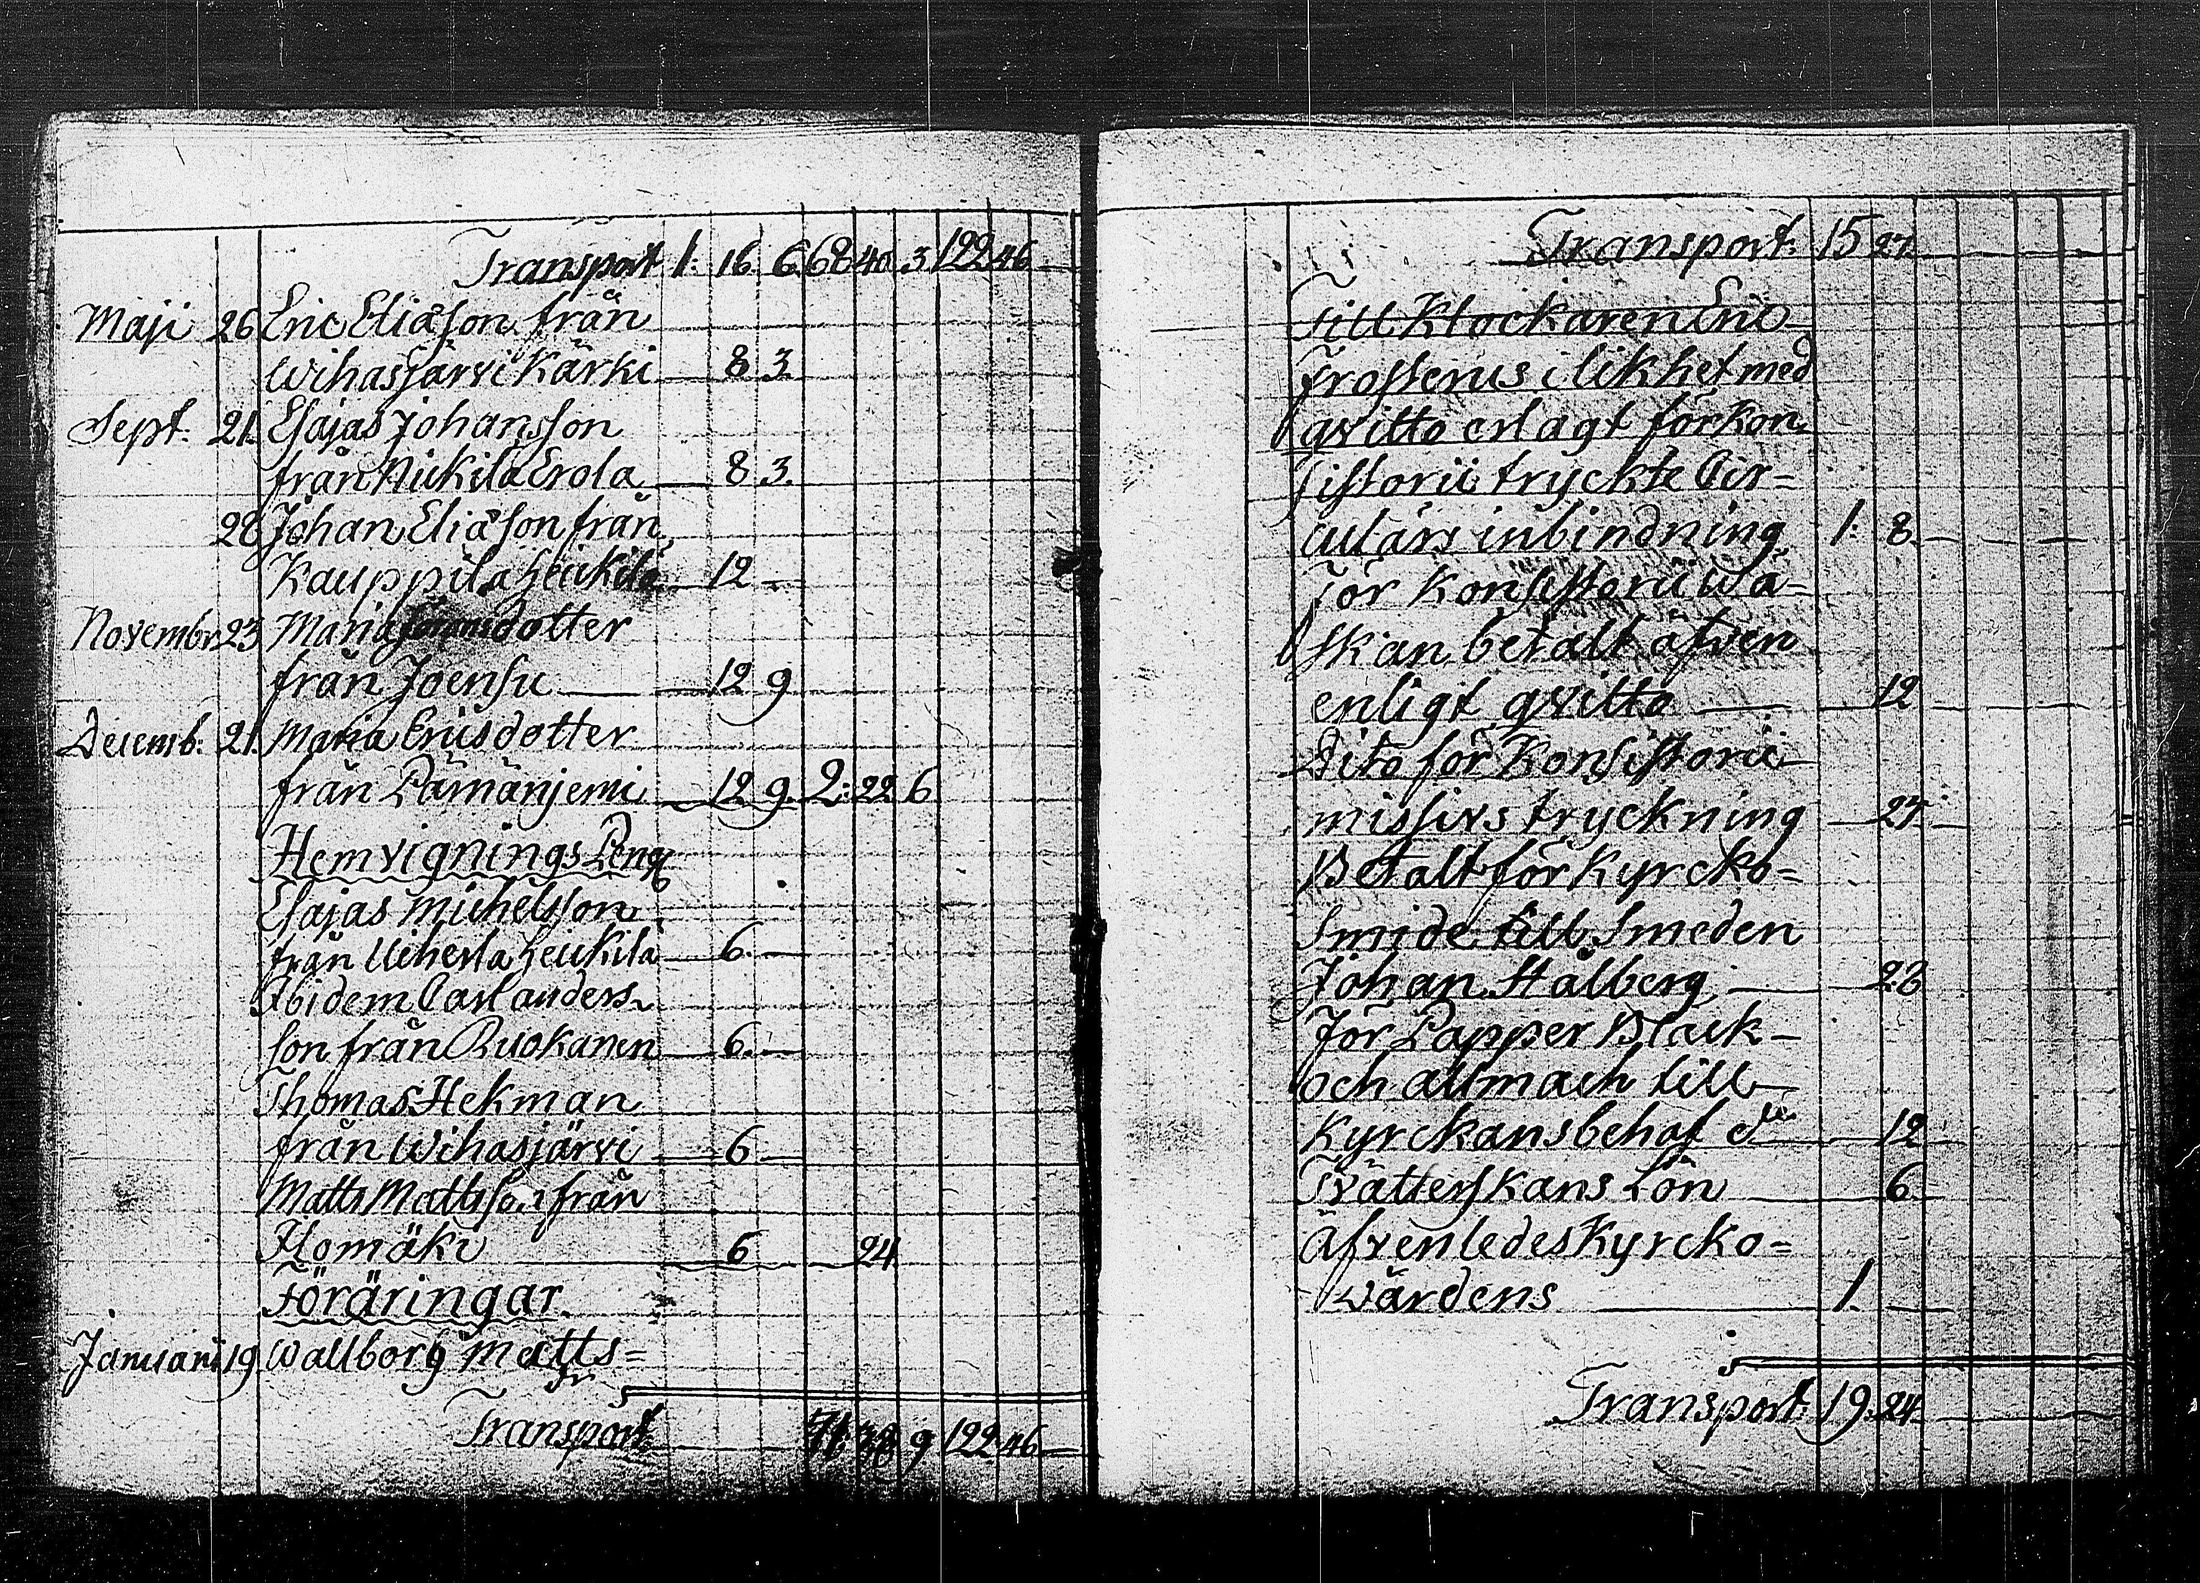 Transport 1: 16. 6 68 40. 3. 122 46.
Maji 26 Eric Eliæson från
Wihasjärvi Kärki 8 3.
Sept. 21. Esajas Johansson
från Nickila Erola 8 3.
28 Johan Eliæson från
Kauppila Heickilä 12
Novembr. 23 Maria dotter
från Joensu 12 9
Decemb. 21. Maria Ericsdotter
från Pämänjemi 12 9. 2: 22 6
Hemvignings Peng
Esajas Michelsson
från Ucherla Heickilä 6.
Ibidem Carl anders
son från Ruokanen 6.
Thomas Hekman
från Wihasjärvi 6
Matts Mattsson från
Homäki 6 24
Föräringar.
Januarii 19. Wallborg Matts=
Transport 71 38 9 122 46
Transport. 15 27.
Till Klockaren Eric
Frosterus i likhet med
qvitto erlagt för Kon
sistorii tryckte Cir=
culärs inbindning 1: 8
För Konsistorii Wä=
skan betalt äfven
enligt qvitto 12
Dito för Konsistorii
missivs tryckning 27.
Betalt för Kyrcko=
Smide till Smeden
Johan Stålberg 28
För Papper Bläck
och allmach till
Kyrckans behof 12
Tvätterskans Lön 6
Äfvenledes Kyrcko=
wärdens 1.
Transport. 19. 24.